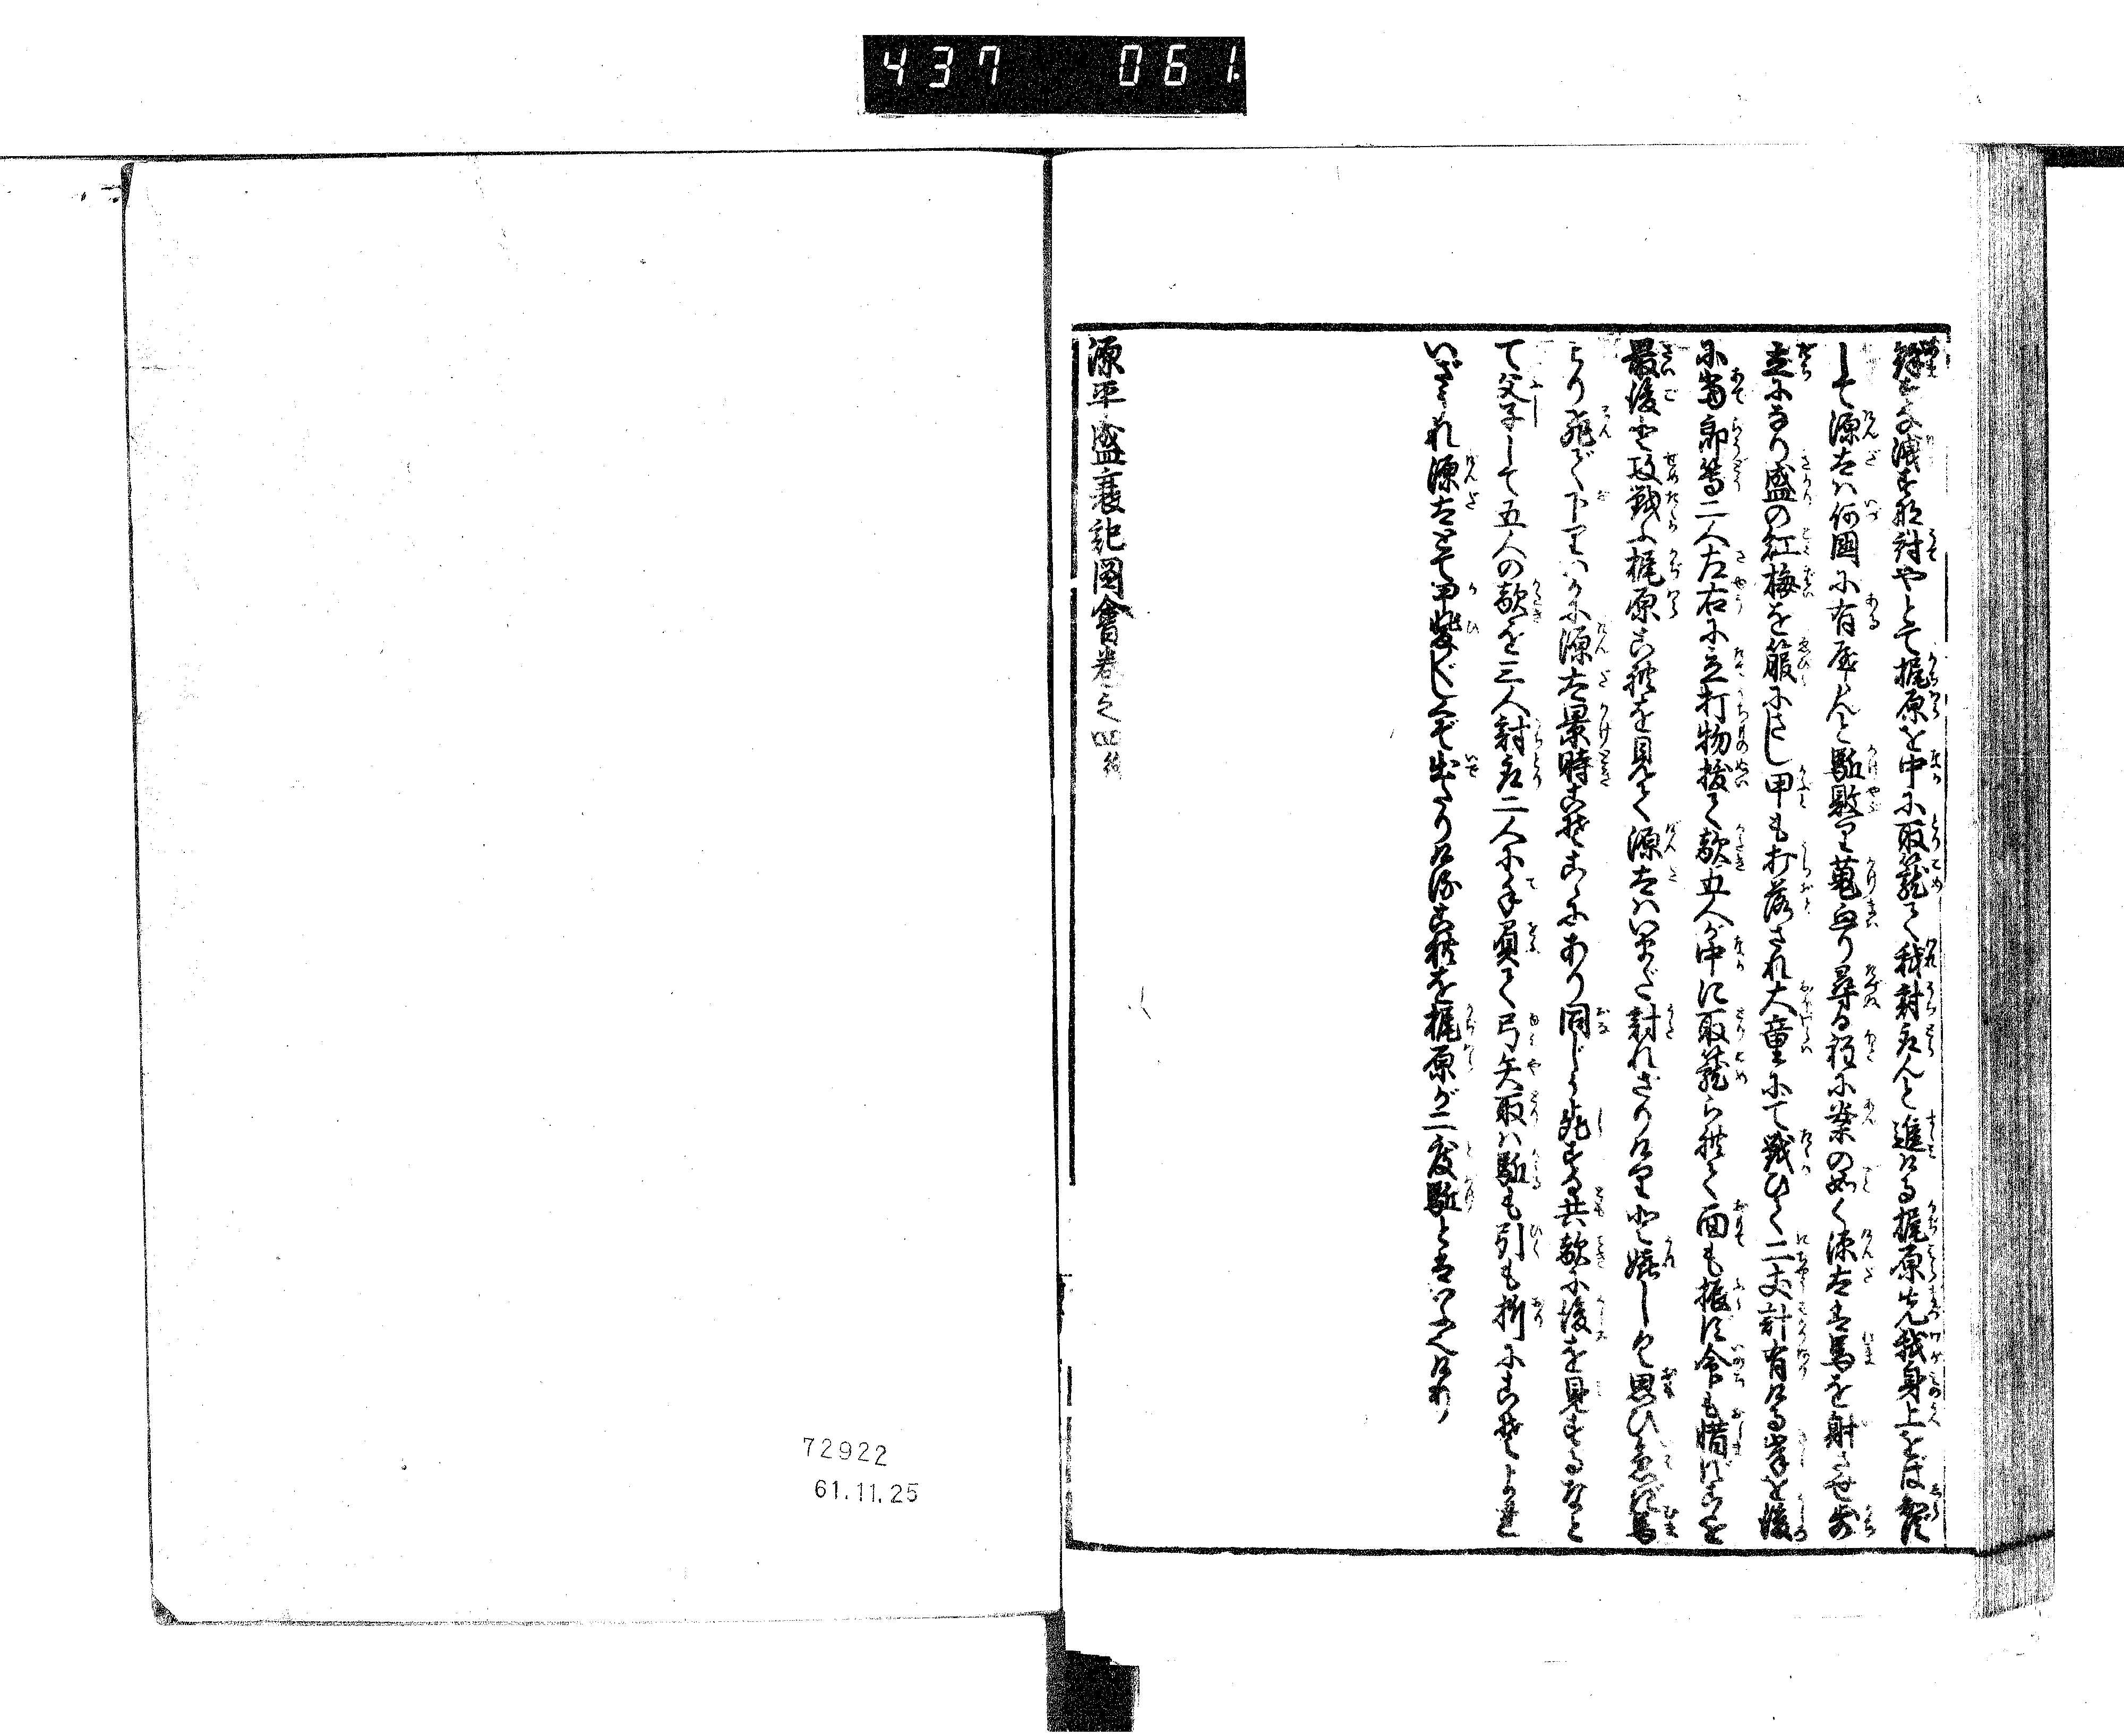 437 061.
餘すな漏すな討やとて梶原を中に取籠て我討取んと進ける梶原先我身上をば知ず
して源太は何国に有やらんと駈散し蒐廻り尋る程に案の如く源太は馬を射させ歩
立になり盛の紅梅を箙にさし甲も打落され大童にて戦ひく二丈計有ける岸を後
に当郎等二人左右に立打物抜て敵五人が中に取籠られて面も振ず命も惜ずこゝを
最後と攻戦ふ梶原これを見て源太はいまだ討れざりけりと嬉しく思ひ急ぎ馬
より飛で下いかに源太景時こゝにあり同じう死する共敵に後を見するなと
て父子して五人の敵を三人討取二人に手負て弓矢取は駈も引も折にこそよれ
いざうれ源太とて 出たりける是を梶原が二度駈とはいふなり
源平盛衰記図会巻之四終
72922
61.11.25